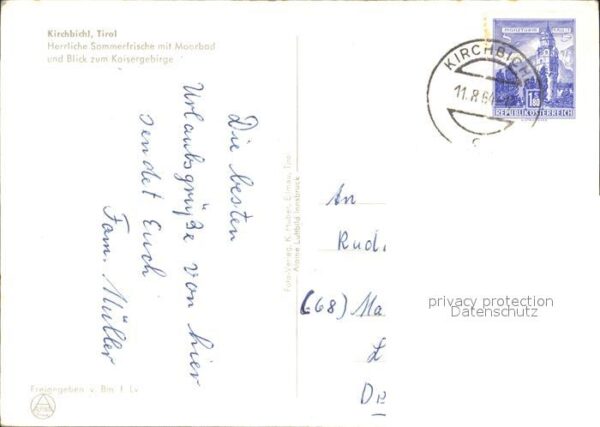 Kirchbichl, Tirol
Herrliche Sommerfrische mit Moorbad
und Blick zum Kaisergebirge
Die besten
Urlaubsgrüße von hier
sendet Euch
Fam. Müller
Foto-Verlag K. Huber, Ellmau, Tirol
Alpine Luftbild Innsbruck
MÜNZTURM HALL
S 1.80
REPUBLIK ÖSTERREICH
KIRCHBICHL
11.8.64
An
Rud.
(668) Ma
privacy protection
Datenschutz
Freigegeben v. Bm. f. Lv.